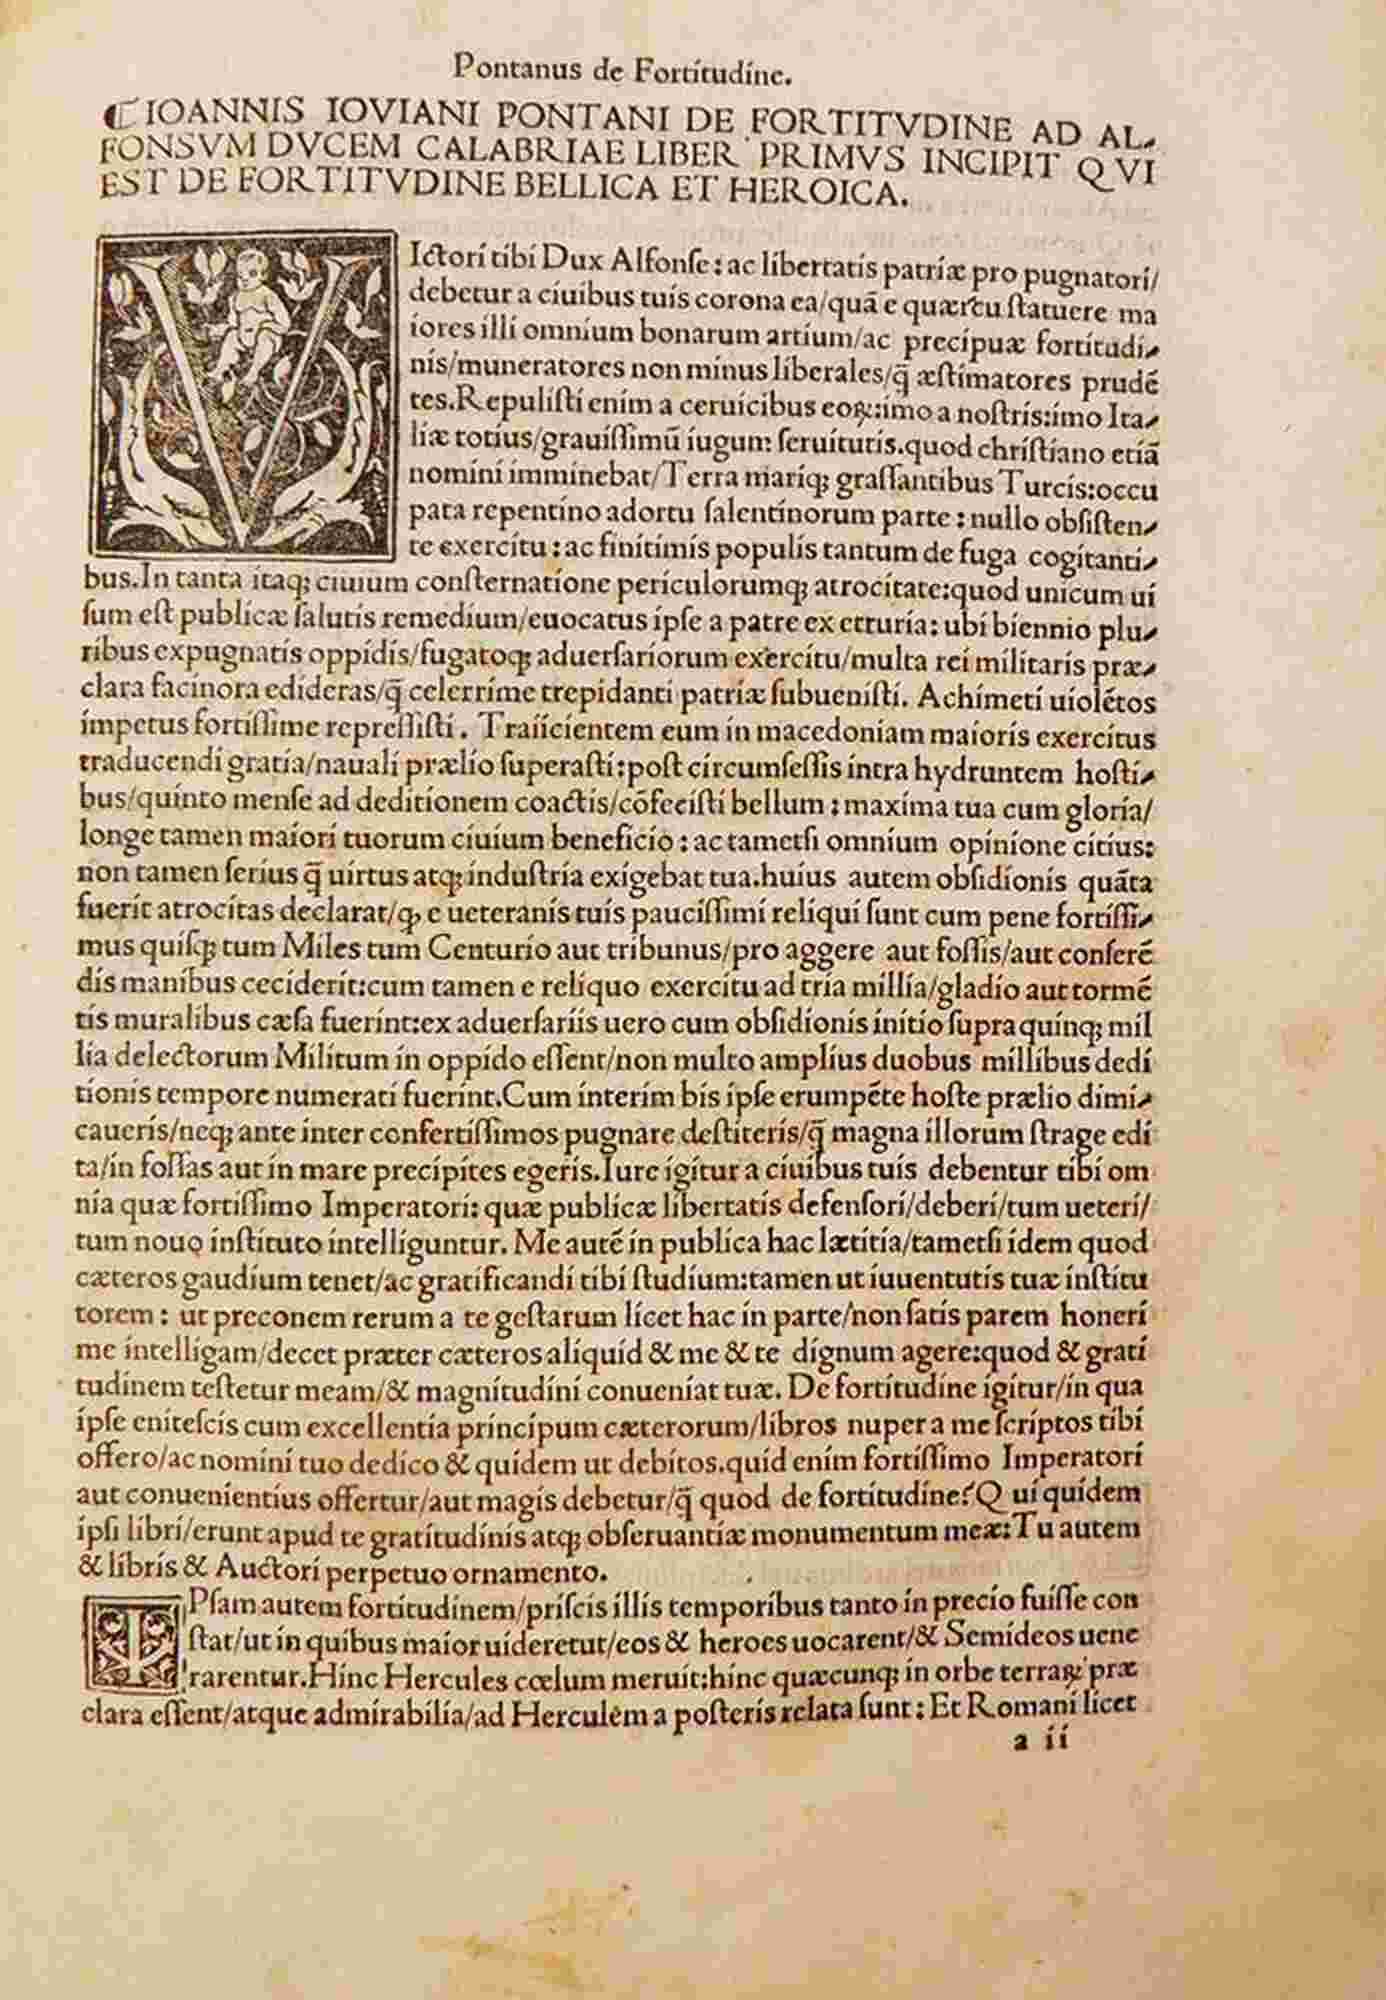 Pontanus de Fortitudine.
⸿ IOANNIS IOVIANI PONTANI DE FORTITVDINE AD AL-
FONSVM DVCEM CALABRIAE LIBER PRIMVS INCIPIT QVI
EST DE FORTITVDINE BELLICA ET HEROICA.
VIctori tibi Dux Alfonſe: ac libertatis patriæ pro pugnatori/
debetur a ciuibus tuis corona ea/quã e quærcu ſtatuere ma
iores illi omnium bonarum artium/ac precipuæ fortitudi-
nis/muneratores non minus liberales/q̃ æſtimatores prudẽ
tes.Repuliſti enim a ceruicibus eoꝝ:imo a noſtris:imo Ita-
liæ totius/grauiſſimũ iugum ſeruitutis.quod chriſtiano etiã
nomini imminebat/Terra mariqꝫ graſſantibus Turcis:occu
pata repentino adortu ſalentinorum parte: nullo obſiſten-
te exercitu: ac finitimis populis tantum de fuga cogitanti-
bus.In tanta itaqꝫ ciuium conſternatione periculorumqꝫ atrocitate:quod unicum ui
ſum eſt publicæ ſalutis remedium/euocatus ipſe a patre ex etruria: ubi biennio plu-
ribus expugnatis oppidis/fugatoqꝫ aduerſariorum exercitu/multa rei militaris præ-
clara facinora edideras/q̃ celerrime trepidanti patriæ ſubueniſti. Achimeti uiolẽtos
impetus fortiſſime repreſſiſti. Traiicientem eum in macedoniam maioris exercitus
traducendi gratia/nauali prælio ſuperaſti:poſt circumſeſſis intra hydruntem hoſti-
bus/quinto menſe ad deditionem coactis/cõfeciſti bellum: maxima tua cum gloria/
longe tamen maiori tuorum ciuium beneficio: ac tametſi omnium opinione citius:
non tamen ſerius q̃ uirtus atqꝫ induſtria exigebat tua.huius autem obſidionis quãta
fuerit atrocitas declarat/ꝙ e ueteranis tuis pauciſſimi reliqui ſunt cum pene fortiſſi-
mus quiſqꝫ tum Miles tum Centurio aut tribunus/pro aggere aut foſſis/aut conferẽ
dis manibus ceciderit:cum tamen e reliquo exercitu ad tria millia/gladio aut tormẽ
tis muralibus cæſa fuerint:ex aduerſariis uero cum obſidionis initio ſupra quinqꝫ mil
lia delectorum Militum in oppido eſſent/non multo amplius duobus millibus dedi
tionis tempore numerati fuerint.Cum interim bis ipſe erumpẽte hoſte prælio dimi-
caueris/neqꝫ ante inter confertiſſimos pugnare deſtiteris/q̃ magna illorum ſtrage edi
ta/in foſſas aut in mare precipites egeris.Iure igitur a ciuibus tuis debentur tibi om
nia quæ fortiſſimo Imperatori: quæ publicæ libertatis defenſori/deberi/tum ueteri/
tum nouo inſtituto intelliguntur. Me autẽ in publica hac lætitia/tametſi idem quod
cæteros gaudium tenet/ac gratificandi tibi ſtudium:tamen ut iuuentutis tuæ inſtitu
torem: ut preconem rerum a te geſtarum licet hac in parte/non ſatis parem honeri
me intelligam/decet præter cæteros aliquid & me & te dignum agere:quod & grati
tudinem teſtetur meam/& magnitudini conueniat tuæ. De fortitudine igitur/in qua
ipſe eniteſcis cum excellentia principum cæterorum/libros nuper a me ſcriptos tibi
offero/ac nomini tuo dedico & quidem ut debitos.quid enim fortiſſimo Imperatori
aut conuenientius offertur/aut magis debetur/q̃ quod de fortitudine? Qui quidem
ipſi libri/erunt apud te gratitudinis atqꝫ obſeruantiæ monumentum meæ: Tu autem
& libris & Auctori perpetuo ornamento.
IPſam autem fortitudinem/priſcis illis temporibus tanto in precio fuiſſe con
ſtat/ut in quibus maior uideretur/eos & heroes uocarent/& Semideos uene
rarentur.Hinc Hercules cœlum meruit:hinc quæcunqꝫ in orbe terraꝝ præ
clara eſſent/atque admirabilia/ad Herculem a poſteris relata ſunt: Et Romani licet
a ii